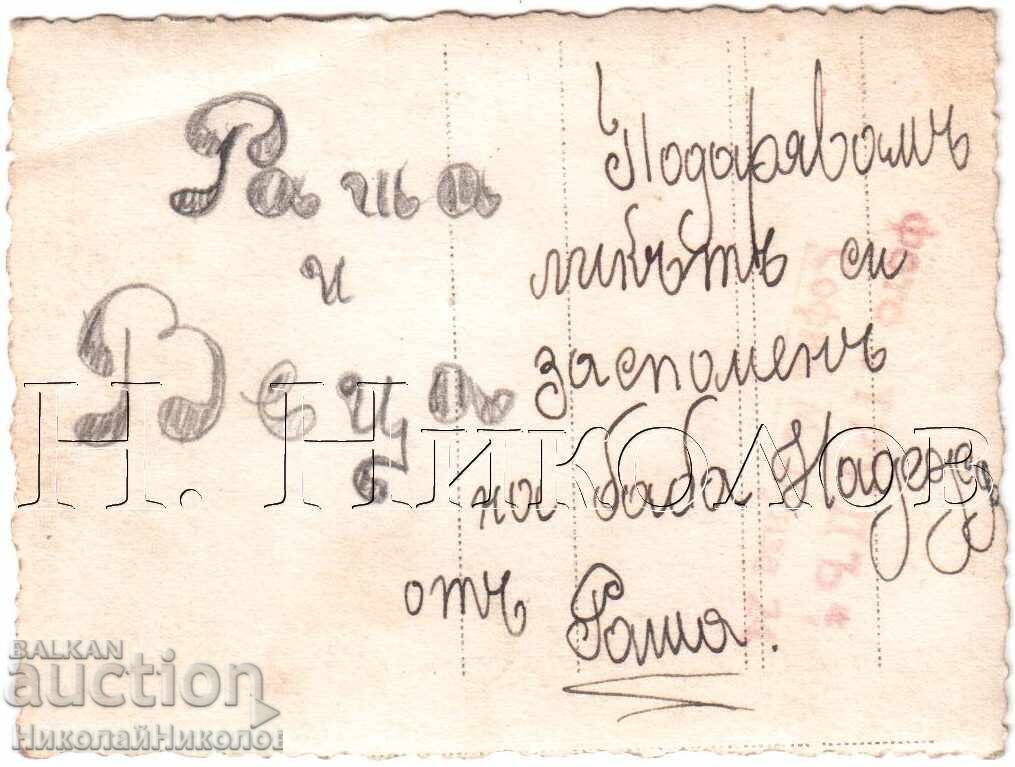 Раша
и
Веца
Подарявамъ
ликътъ си
за споменъ
на баба Надежд
отъ Раша.
Н. Николов
BALKAN
auction
НиколайНиколов